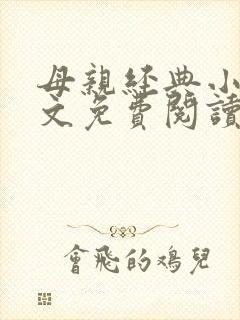 母親經典小
文免費閱讀
會飛的鳮兒